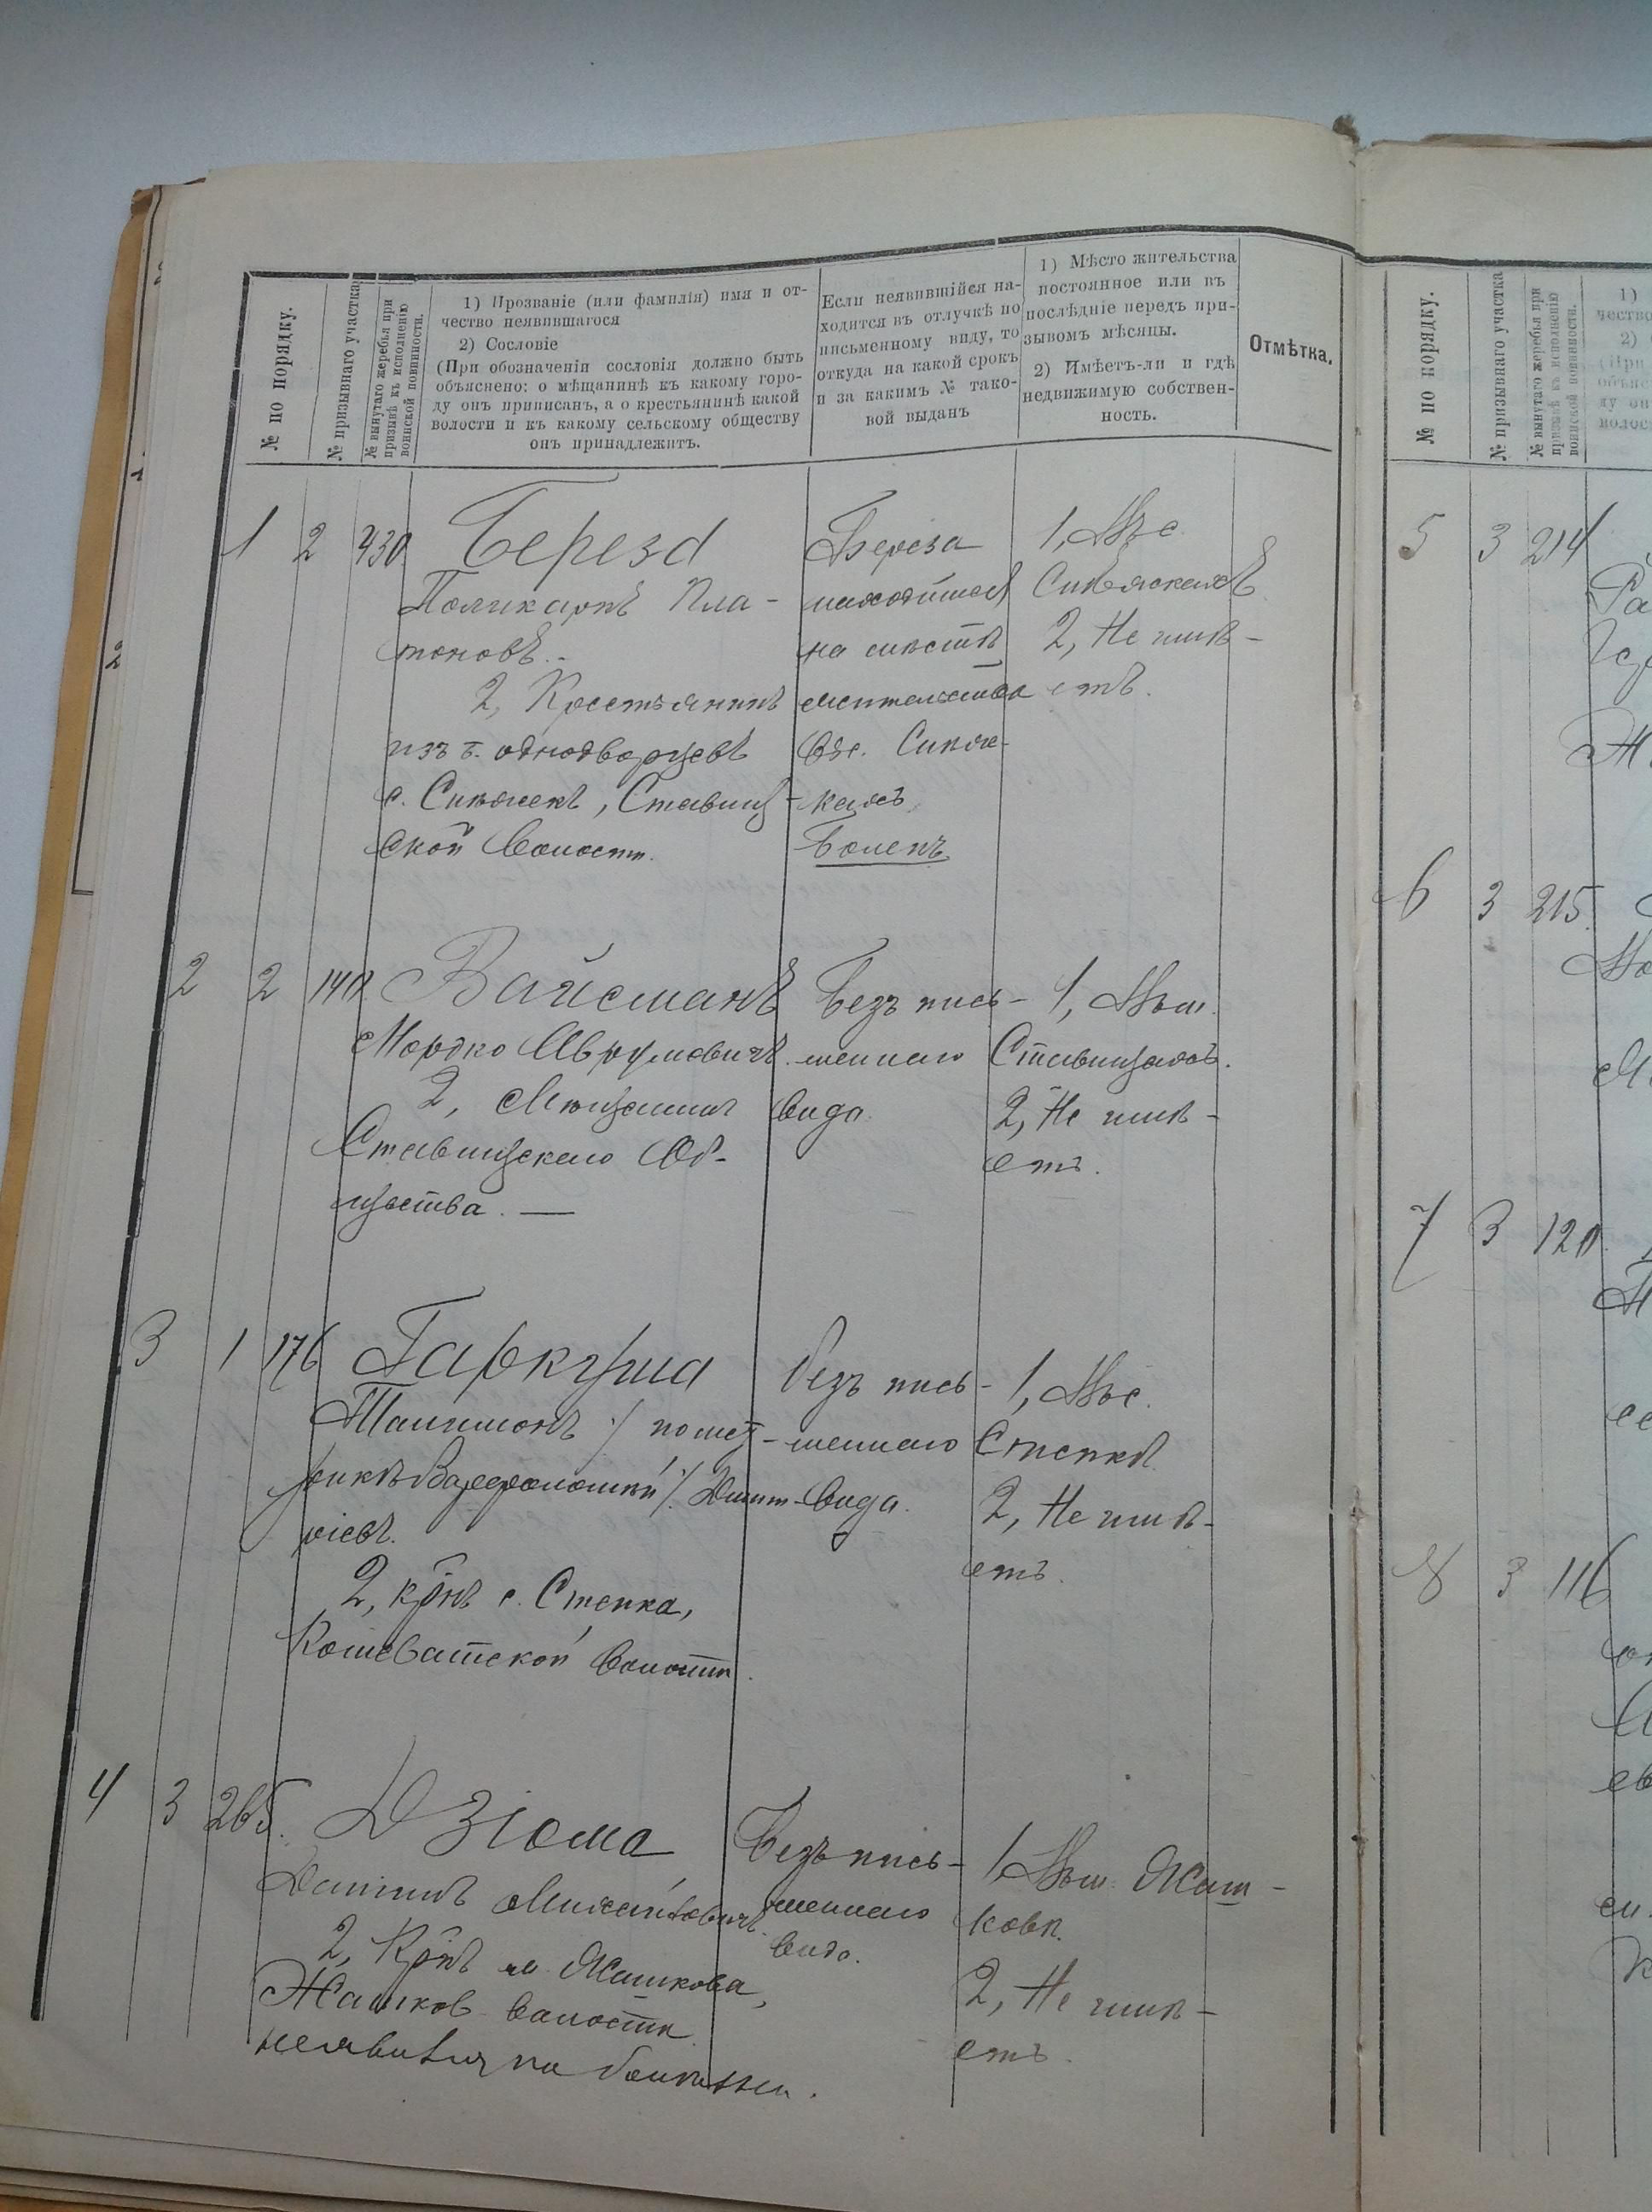 № по порядку.
№ призывнаго участка
№ вынутаго жеребья при
призывѣ къ исполненію
воинской повинности.
1) Прозваніе (или фамилія) имя и от-
чество неявившагося
2) Сословіе
(При обозначеніи сословія должно быть
объяснено: о мѣщанинѣ къ какому горо-
ду онъ приписанъ, а о крестьянинѣ какой
волости и къ какому сельскому обществу
онъ принадлежитъ.
Если неявившійся на-
ходится въ отлучкѣ по
письменному виду, то
откуда на какой срокъ
и за какимъ № тако-
вой выданъ
1) Мѣсто жительства
постоянное или въ
послѣдніе передъ при-
зывомъ мѣсяцы.
2) Имѣетъ-ли и гдѣ
недвижимую собствен-
ность.
Отмѣтка.
1 2 430
Береза
Поликарпъ Пла-
тоновъ.
2, Крестьянинъ
изъ б. однодворцевъ
с. Сніжекъ, Ставищ-
ской волости.
Береза
находится
на мѣстѣ
жительства
въ с.
Боленъ
1, Въ с.
2, Не имѣ-
етъ.
2 2 140
Вайсманъ
Мордко Аврумовичъ.
2, Мѣщанинъ
Ставищскаго Об-
щества. —
Безъ пись-
меннаго
вида.
1, Въ м.
Ставищахъ.
2, Не имѣ-
етъ.
3 1 176
Гаркуша
Филимонъ /по мет-
рикѣ Варфоломей/. Дмит-
ріевъ.
2, кр̃нъ с. Степка,
Кошеватской волости.
безъ пись-
меннаго
вида.
1, Въ с.
Степкѣ.
2, Не имѣ-
етъ.
4 3 265.
Дзюма
Даніилъ Михайловичъ.
2, Кр̃нъ м. Жашкова,
Жашков волости
неявился по болѣзни.
Безъ пись-
меннаго
вида.
1, Въ м. Жаш-
ковѣ.
2, Не имѣ-
етъ.
№ по порядку.
№ призывнаго участка
№ вынутаго жеребья при
призывѣ къ исполненію
воинской повинности.
5 3 214
6 3 215.
7 3 120.
8 3 116